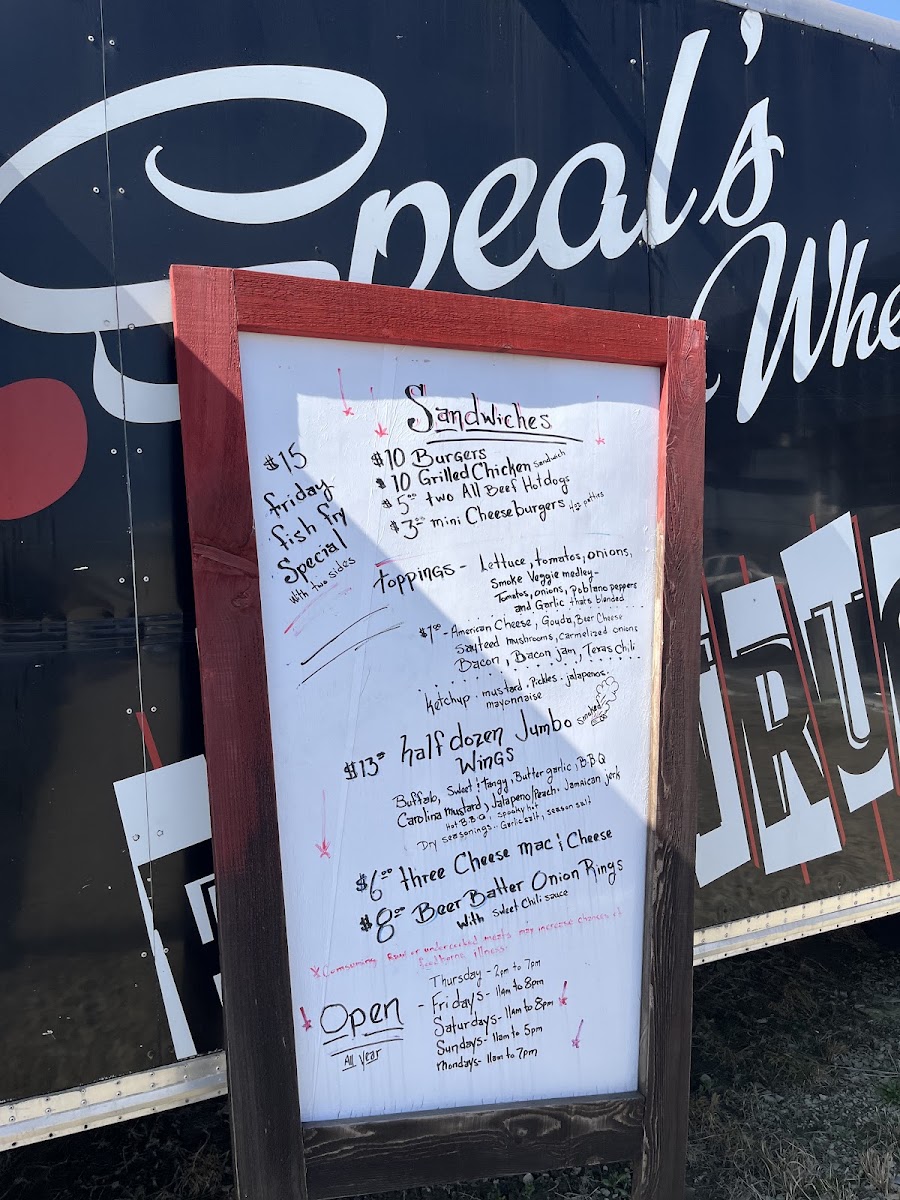 Speal's
Whe
TRUC
Sandwiches
$10 Burgers
$10 Grilled Chicken Sandwich
$5.00 two All Beef Hotdogs
$3.00 mini Cheeseburgers 4oz patties
$15
friday
fish fry
Special
with two sides
toppings - Lettuce, tomatos, onions,
Smoke Veggie medley -
Tomatos, onions, Poblano peppers
and Garlic thats blended
$1.00 - American Cheese, Gouda, Beer Cheese
Sauteed mushrooms, Carmelized onions
Bacon, Bacon jam, Texas Chili
Ketchup - mustard, Pickles - jalapenos -
mayonnaise
$13.00 half dozen Jumbo Smoked
Wings
Buffalo, Sweet & Tangy, Butter garlic, B.B.Q
Carolina Mustard, Jalapeno/Peach, Jamaican jerk
Hot B.B.Q, Spooky hot
Dry Seasonings - Garlic salt, season salt
$6.00 three Cheese mac & Cheese
$8.00 Beer Batter Onion Rings
With Sweet Chili sauce
*Comsuming Raw or undercooked meats may increase chances of
foodborne illness
Open
All Year
Thursday - 2pm to 7pm
- Fridays - 11am to 8pm
Saturdays - 11am to 8pm
Sundays - 11am to 5pm
mondays - 11am to 7pm